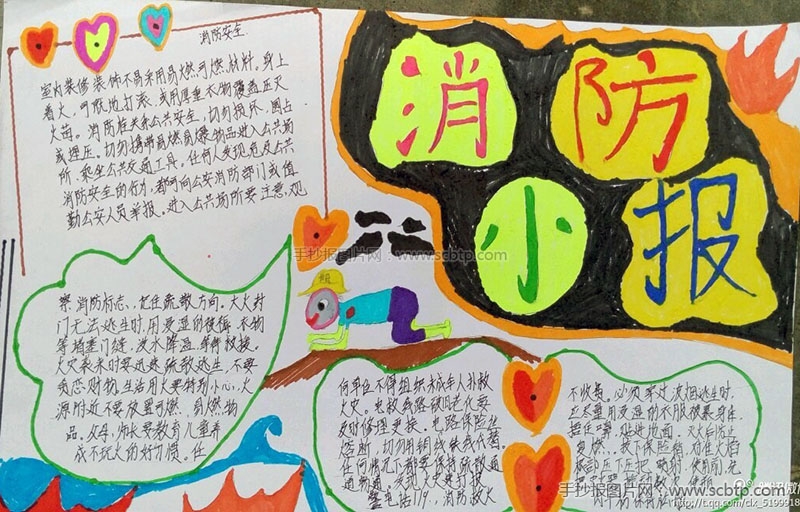 消防小报
消防安全
室内装修装饰不易采用易燃可燃材料。身上
着火,可就地打滚,或用厚重衣物覆盖压灭
火苗。消防栓关系公共安全,切勿损坏、圈占
或埋压。切勿携带易燃易爆物品进入公共场
所、乘坐公共交通工具。任何人发现危及公共
消防安全的行为,都可向公安消防部门或值
勤公安人员举报。进入公共场所要注意观
察消防标志,记住疏散方向。大火封
门无法逃生时,用浸湿的被褥、衣物
等堵塞门缝,泼水降温,等待救援。
火灾袭来时要迅速疏散逃生,不要
贪恋财物。生活用火要特别小心,火
源附近不要放置可燃、易燃物
品。父母、师长要教育儿童养
成不玩火的好习惯。任
何单位不得组织未成年人扑救
火灾。电器线路破旧老化要
及时修理更换。电路保险丝
熔断,切勿用铜线铁线代替。
任何情况下都要保持疏散通道
畅通。发现火灾要打报
警电话119,消防救火
不收费。必须穿过浓烟逃生时,
应尽量用浸湿的衣服披裹身体,
捂住口鼻,贴近地面。灭火
手抄报图片网 www.scbtp.com
手抄报图片网 www.scbtp.com